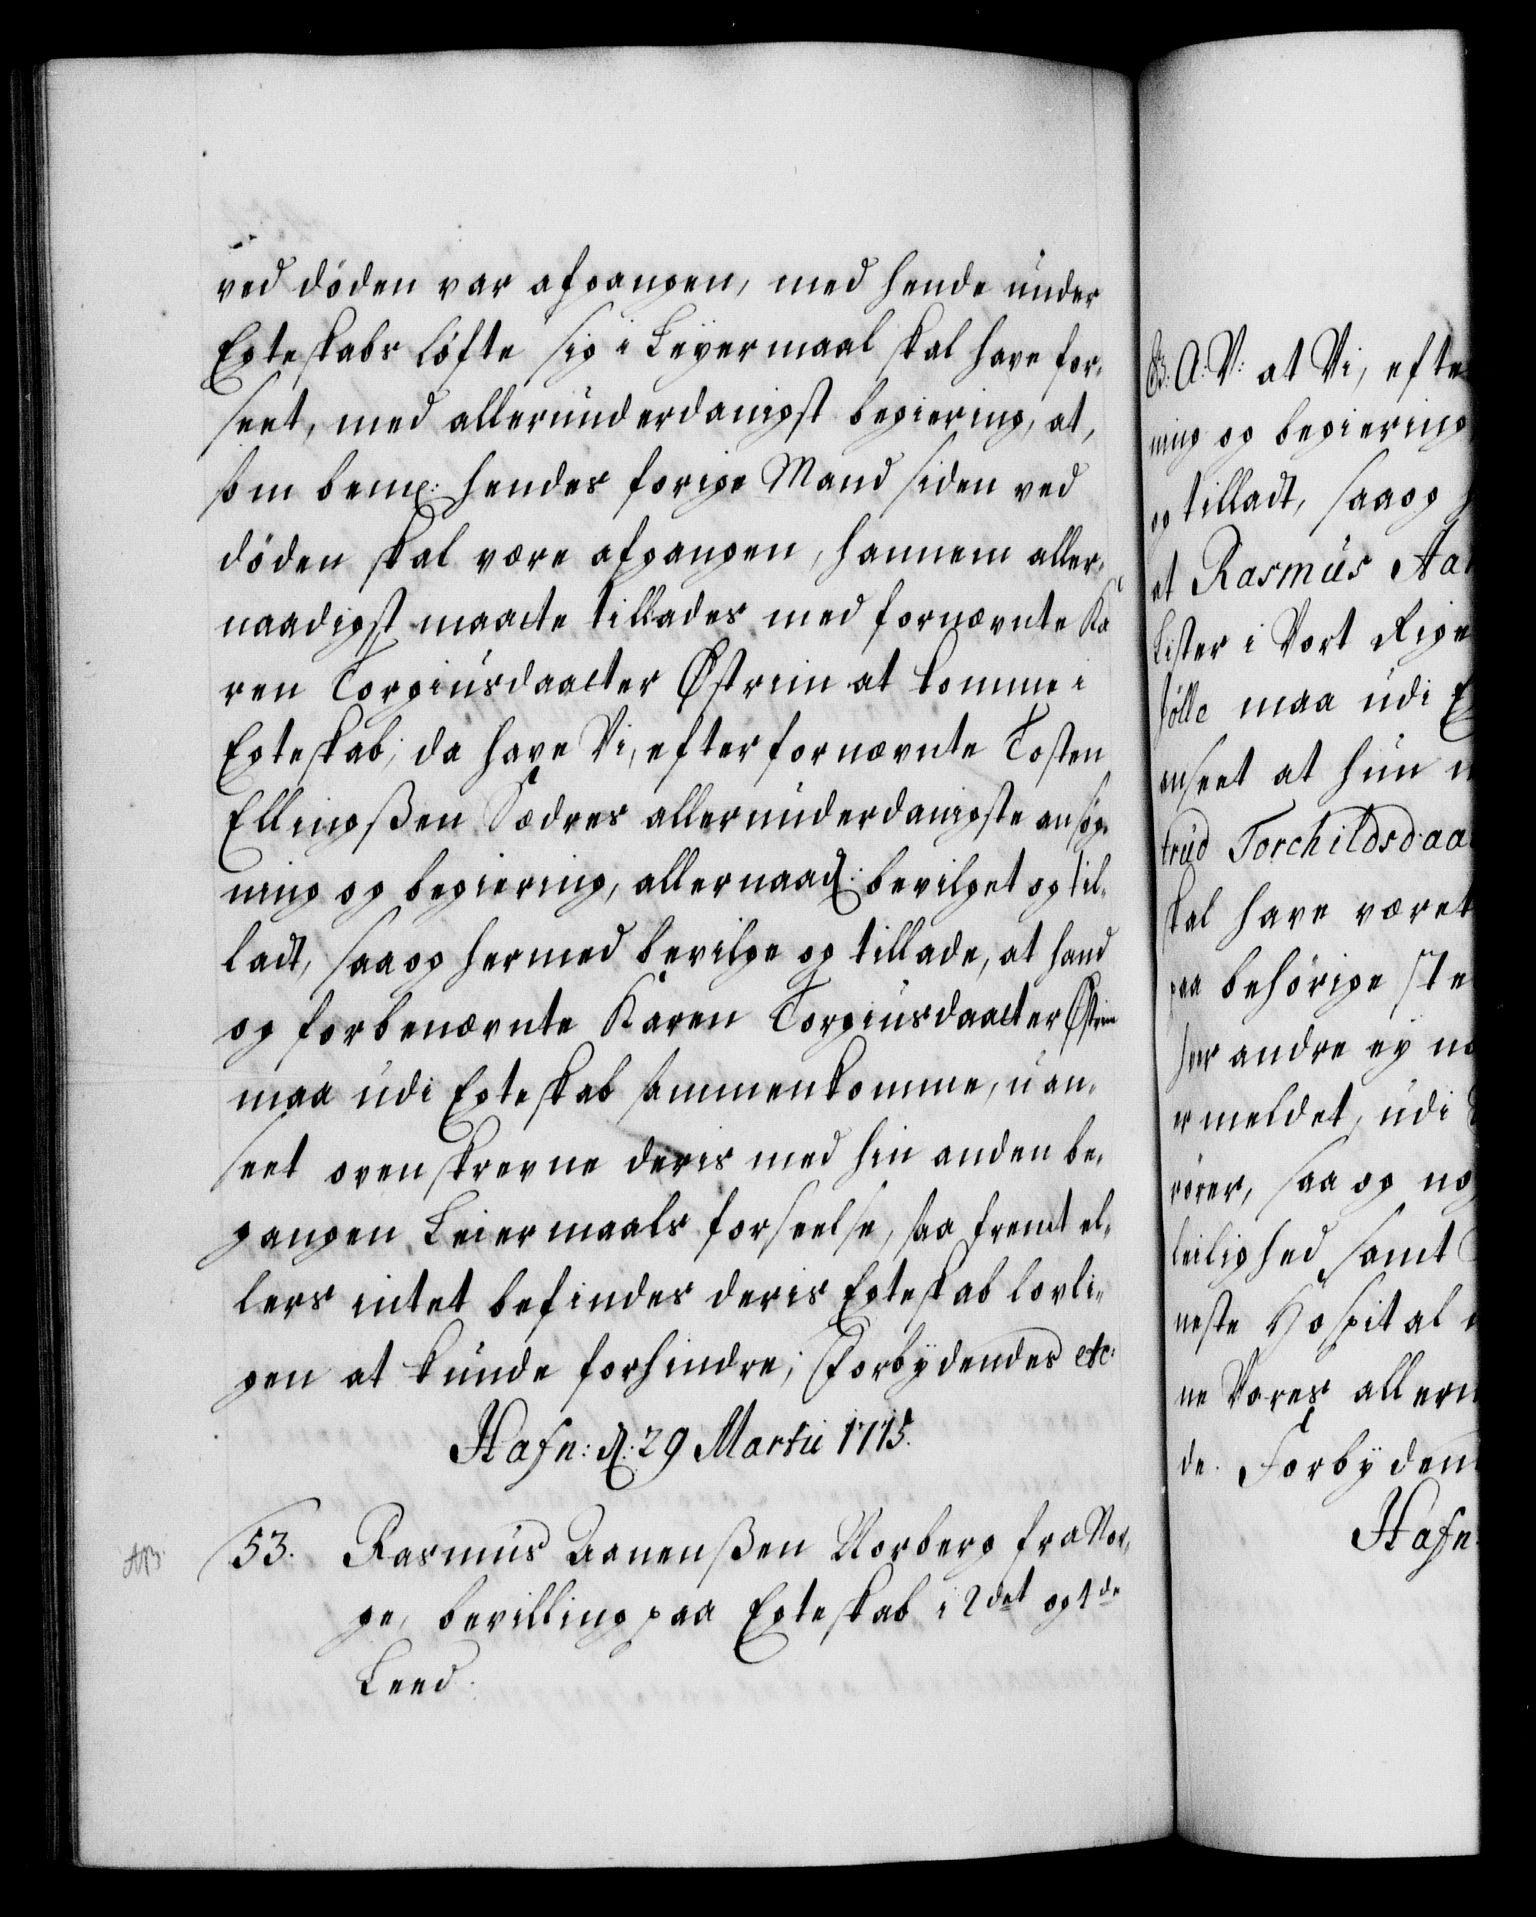 ved döden var afgangen, med hende under
Egteskabs Löfte sig i Leyermaal skal have for-
seet, med allerunderdanigst begiering, at,
som bem: hendes forige Mand siden ved
döden skal være afgangen, hannem aller-
naadigst maatte tillades med fornævnte Ka
ren Torgiusdaatter Østrim at komme i
Egteskab; da have Vi, efter fornævnte Tosten
Ellingsßen Sædres allerunderdanigste ansög-
ning og begiering, allernaad: bevilget og til-
ladt, saa og hermed bevilge og tillade, at hand
og forbenævnte Karen Torgiusdaatter Østrim
maa udi Egteskab sammenkomme, uan-
seet ovenskrevne deris med hin anden be-
gangen Leiermaals forseelse, saa fremt el-
lers intet befindes deris Egteskab lovli-
gen at kunde forhindre; Forbydendes etc:
Hafn: d. 29 Martii 1715.
53. Rasmus Aanenßen Norberg fra Nor-
ge, bevilling paa Egteskab i 2det og 1de
Leed.
B: A: V: at Vi, efte
ning og begiering
og tilladt, saa og
at Rasmus Aa
Lister i Vort Rige
fölle maa udi
anseet at hun
trud Torchildsdaa
skal have været
paa behörige ste
her andre ey
er meldet, udi
rörer, saa og no
leilighed samt
neste Hospital
ne Vores allern
de. Forbyden
Hafn